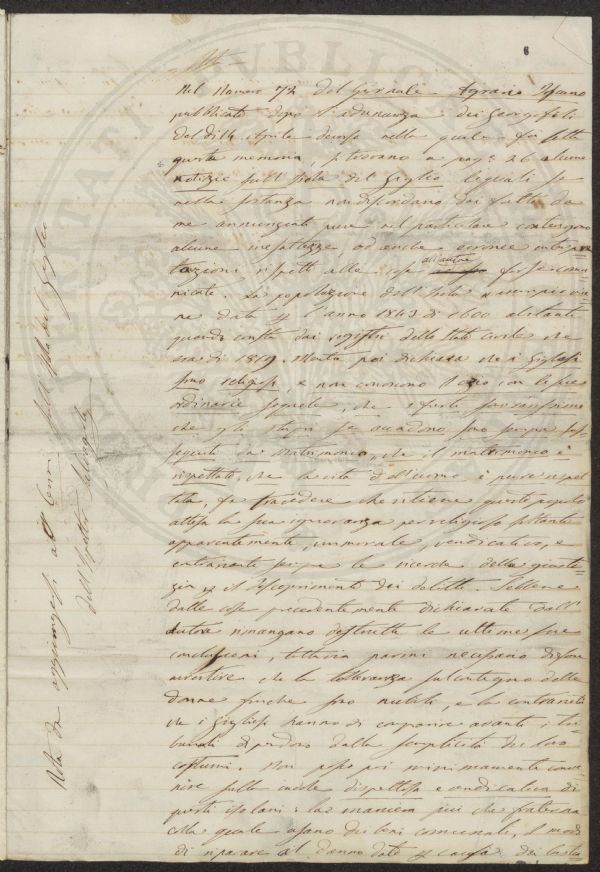 6
Nel Numero 72 del Giornale Agrario Toscano
pubblicato dopo l'adunanza dei Georgofili
del dì 14 Aprile decorso nella quale fu letta
questa memoria, si trovano a pag. 26 alcune
notizie sull'Isola del Giglio le quali se
nella sostanza non discordano dai fatti da
me annunziati pure nel particolare contengono
alcune inesattezze, od anche erronee interpre
tazioni rispetto alle cose all'autore fosse comu
nicate. La popolazione dell'Isola
ne data l'anno 1843 di 1600 abitanti
quando consta dai registri dello Stato Civile che
era di 1819. Mentre poi dichiara che i Gigliesi
sono religiosi, e non conoscono l'ozio con le sue
ordinarie sequele, che i furti son rarissimi
che gli stupri se accadono sono sempre sus
seguiti da Matrimonio, che il matrimonio è
rispettato, che la vita dell'uomo è pure rispet
tata, fa precedere che ritiene questo popolo
attesa la sua ignoranza per religioso soltanto
apparentemente, immorale, vendicativo, e
entrante sempre le ricerche della giusti
zia il discoprimento dei delitti. Sebbene
dalle cose precedentemente dichiarate dall'
Autore rimangano distrutte le ultime sue
conclusioni, tuttavia parmi necessario di fare
avvertire che la tolleranza sul contegno delle
donne finché sono nubili, e la contrarietà
che i Gigliesi hanno di comparire avanti i Tri
bunali dipendono dalla semplicità dei loro
costumi. Non posso poi minimamente conve
nire sulla indole dispettosa e vendicativa di
questi isolani: la maniera più che fraterna
colla quale usano dei beni comunali, il modo
di riparare al danno dato causa dei bestia
Nota da aggiungersi ai Cenni sull'Isola del Giglio
dell'Ispettor Salvagnoli